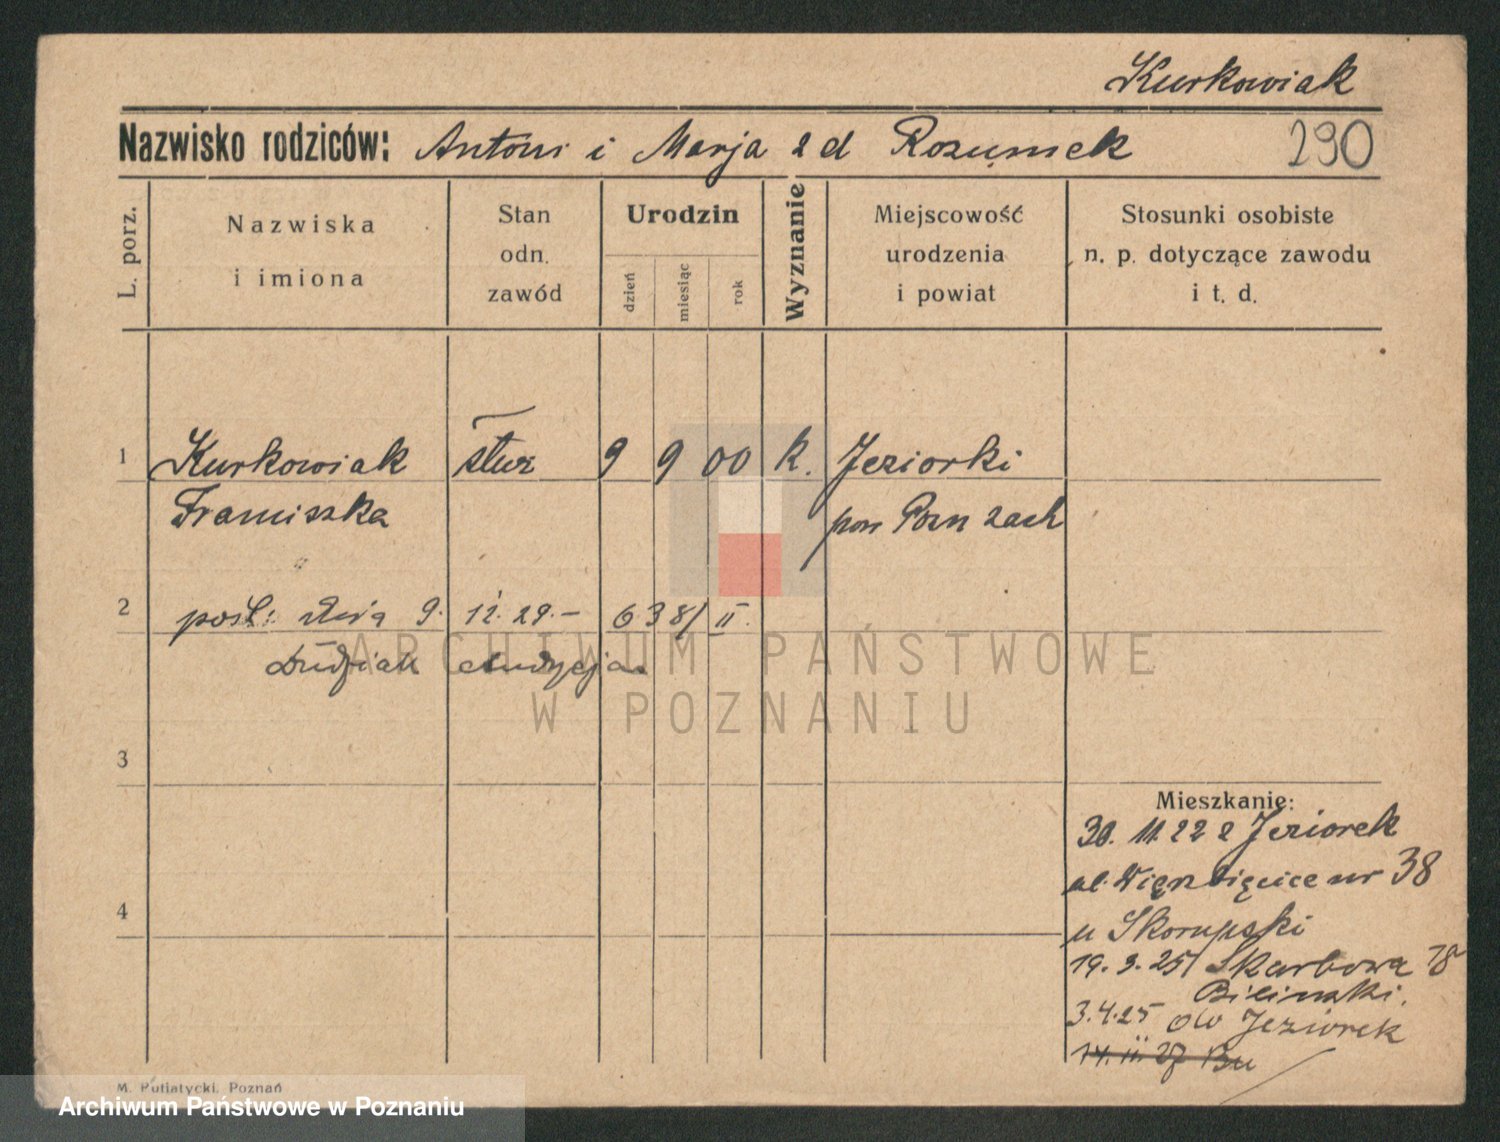 Kurkowiak
Nazwisko rodziców: Antoni i Marja z d Rozumek 290
L. porz.
Nazwiska i imiona
Stan odn. zawód
Urodzin
dzień miesiąc rok
Wyznanie
Miejscowość urodzenia i powiat
Stosunki osobiste n. p. dotyczące zawodu i t. d.
1 Kurkowiak służ 9 9 00 k. Jeziorki
Franciszka pow Pozn zach
2 pośl: dnia 9. 12. 29.- 638/II.
Dudziak Andrzeja
ARCHIWUM PAŃSTWOWE
W POZNANIU
3
Mieszkanie:
30. 11. 22 z Jeziorek
ul. Wierzbięcice nr 38
4
u Skorupski
19. 3. 25 Skarbowa 18
Biliński.
3.4.25 do Jeziorek
M. Putiatycki, Poznań
Archiwum Państwowe w Poznaniu